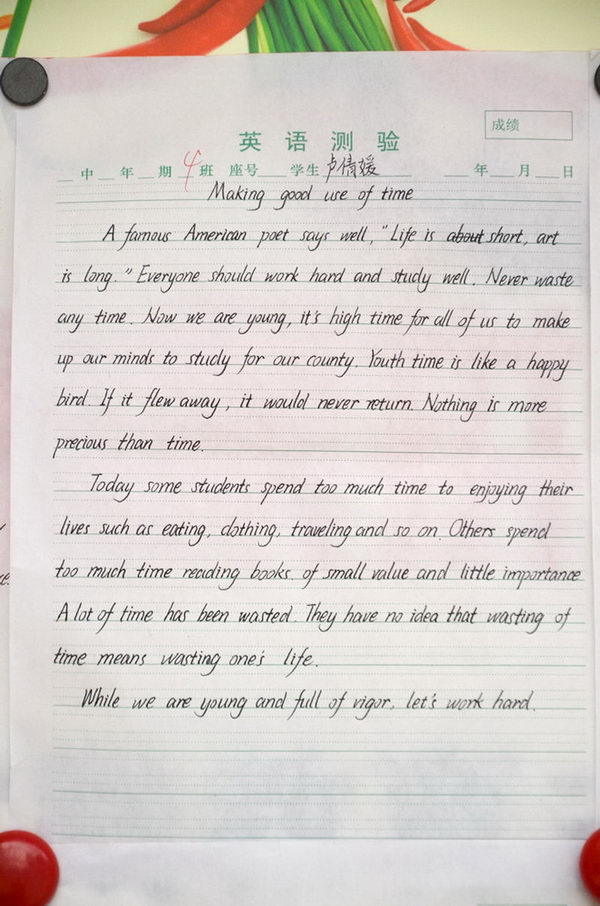 成绩
英语测验
中 年 期 4 班 座号 学生 卢倩媛 年 月 日
Making good use of time
A famous American poet says well, "Life is about short, art
is long." Everyone should work hard and study well. Never waste
any time. Now we are young, it's high time for all of us to make
up our minds to study for our county. Youth time is like a happy
bird. If it flew away, it would never return. Nothing is more
precious than time.
Today some students spend too much time to enjoying their
lives such as eating, clothing, traveling and so on. Others spend
too much time reading books of small value and little importance
A lot of time has been wasted. They have no idea that wasting of
time means wasting one's life.
While we are young and full of vigor, let's work hard.